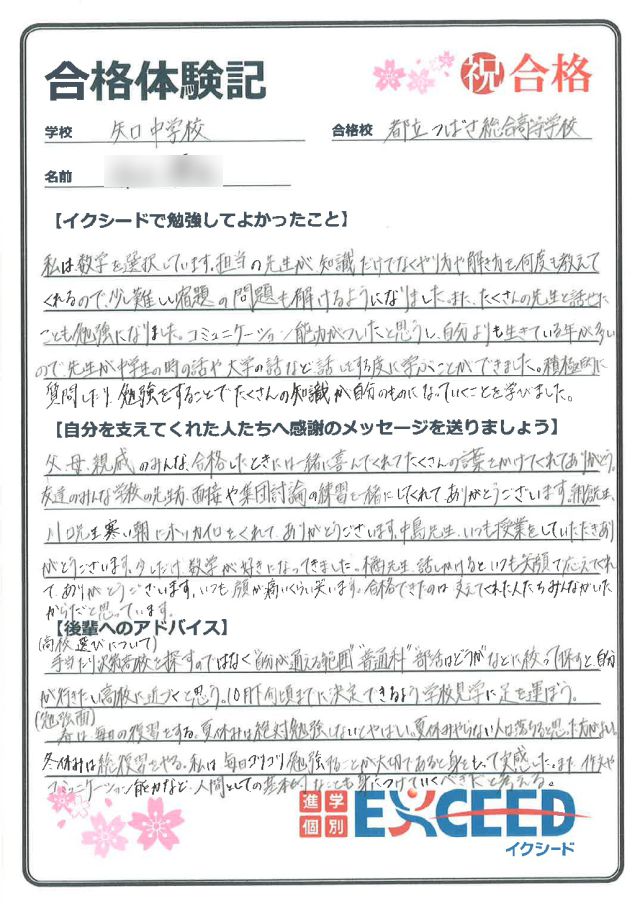 合格体験記
祝 合格
学校 矢口中学校
合格校 都立つばさ総合高等学校
名前
【イクシードで勉強してよかったこと】
私は数学を選択しています。担当の先生が、知識だけでなくやり方や解き方を何度も教えて
くれるので、少し難しい宿題の問題も解けるようになりました。また、たくさんの先生と話せた
ことも勉強になりました。コミュニケーション能力がついたと思うし、自分よりも生きている年が多い
ので先生が中学生の時の話や大学の話など話しをする度に学ぶことができました。積極的に
質問したり、勉強をすることでたくさんの知識が自分のものになっていくことを学びました。
【自分を支えてくれた人たちへ感謝のメッセージを送りましょう】
父、母、親戚のみんな、合格したときには一緒に喜んでくれてたくさんの言葉をかけてくれてありがとう。
友達のみんな学校の先生方、面接や集団討論の練習を一緒にしてくれてありがとうございます。
川口先生寒い朝にホッカイロをくれて、ありがとうございます。中島先生、いつも授業をしていただきあり
がとうございます。少しだけ数学が好きになってきました。橘先生、話しかけるといつも笑顔で応えてくれ
て、ありがとうございます。いつも顔が痛いくらい笑います。合格できたのは支えてくれた人たちみんながいた
からだと思っています。
【後輩へのアドバイス】
(高校選びについて)
手当たり次第高校を探すのではなく"自分が通える範囲""普通科""部活はどうか"などに絞って探すと自分
が行きたい高校に近づくと思う。10月下旬頃までに決定できるよう学校見学に足を運ぼう。
(勉強面)
春は、毎日の復習をする。夏休みは絶対勉強しないとやばい。夏休みやらない人は落ちると思った方がよい。
冬休みは総復習をやる。私は毎日コツコツ勉強することが大切であると身をもって実感した。また、作文や
コミュニケーション能力など、人間としての基本的なことも身につけていくべきだと考える。
進学
個別
EXCEED
イクシード